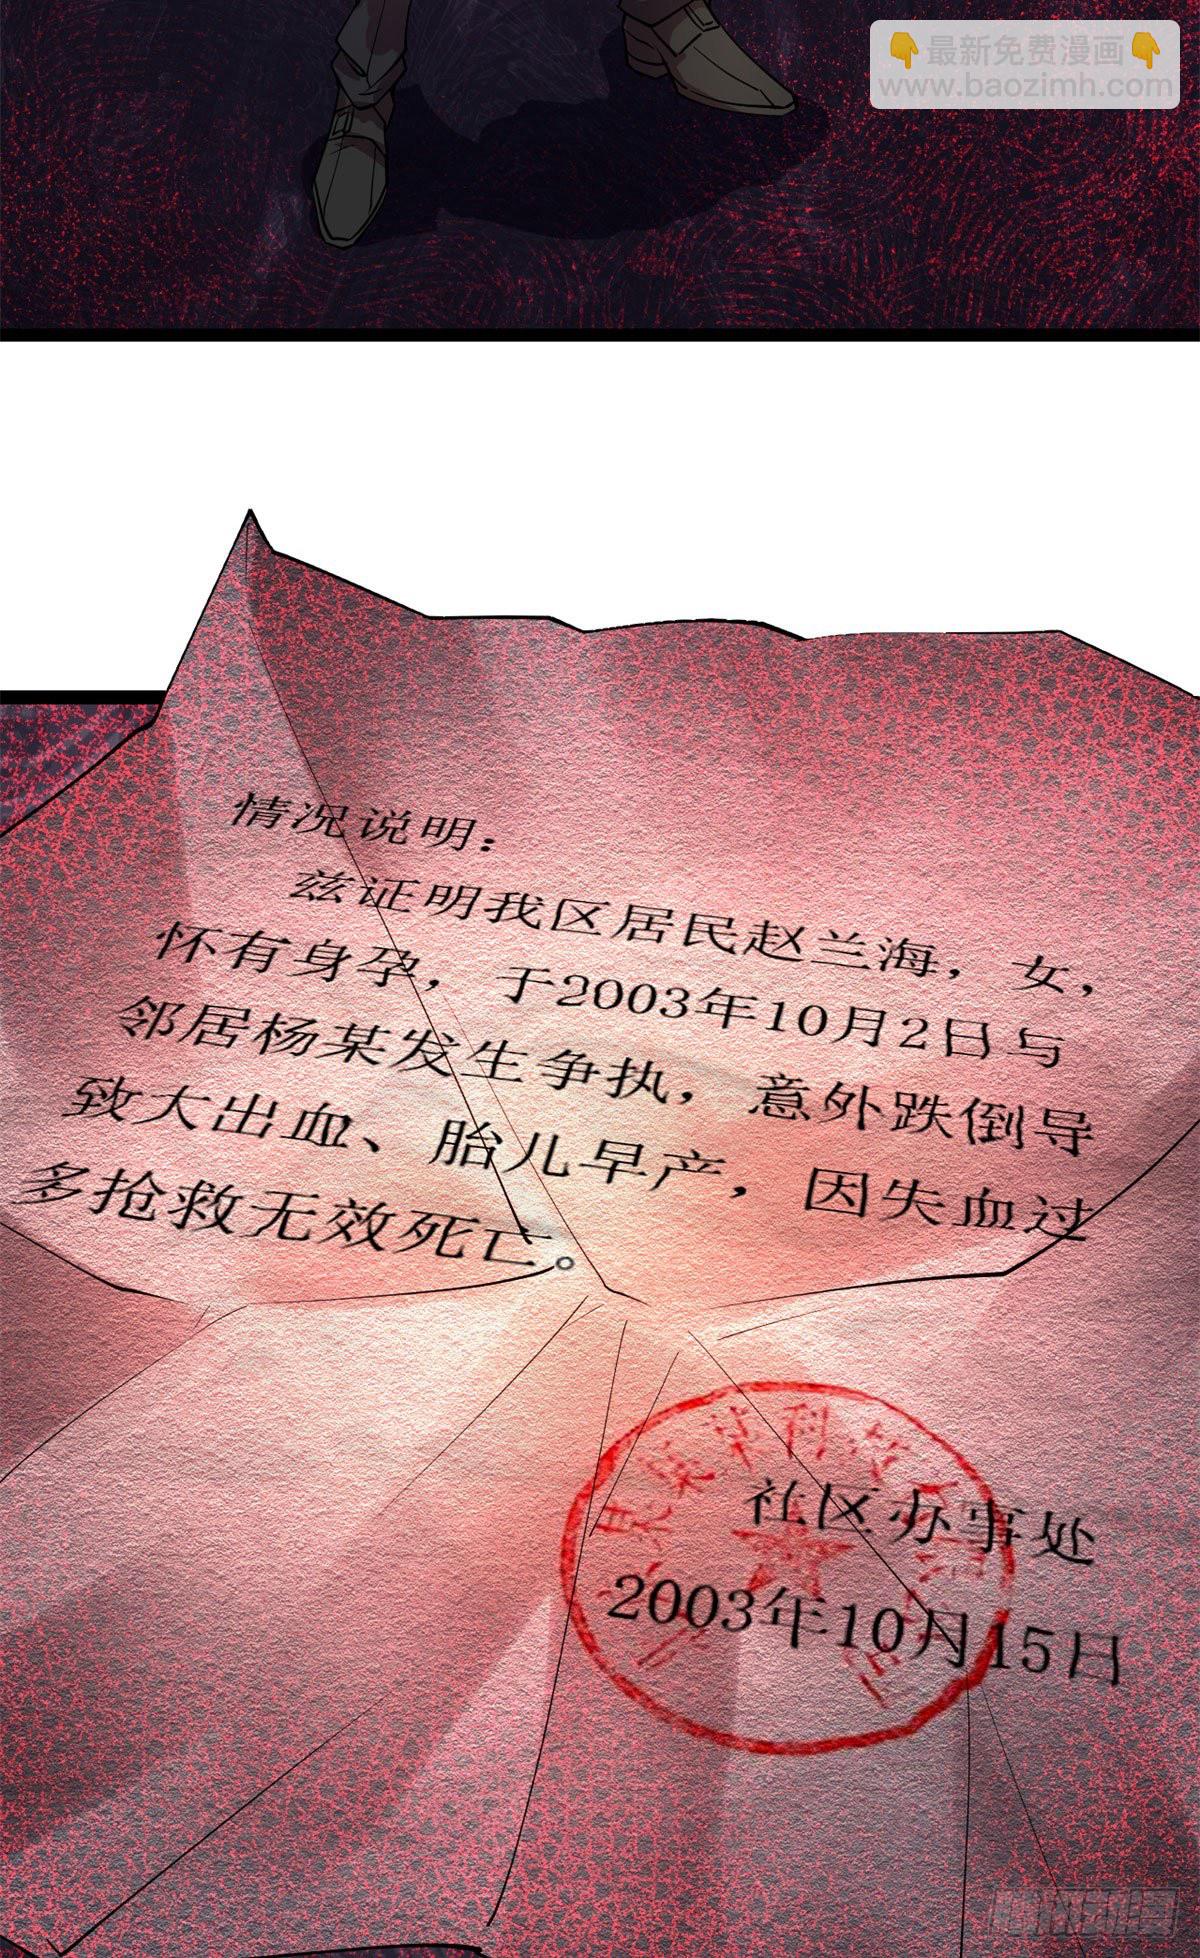 👇最新免费漫画👇
www.baozimh.com
情况说明：
兹证明我区居民赵兰海，女，
怀有身孕，于2003年10月2日与
邻居杨某发生争执，意外跌倒导
致大出血、胎儿早产，因失血过
多抢救无效死亡。
社区办事处
2003年10月15日